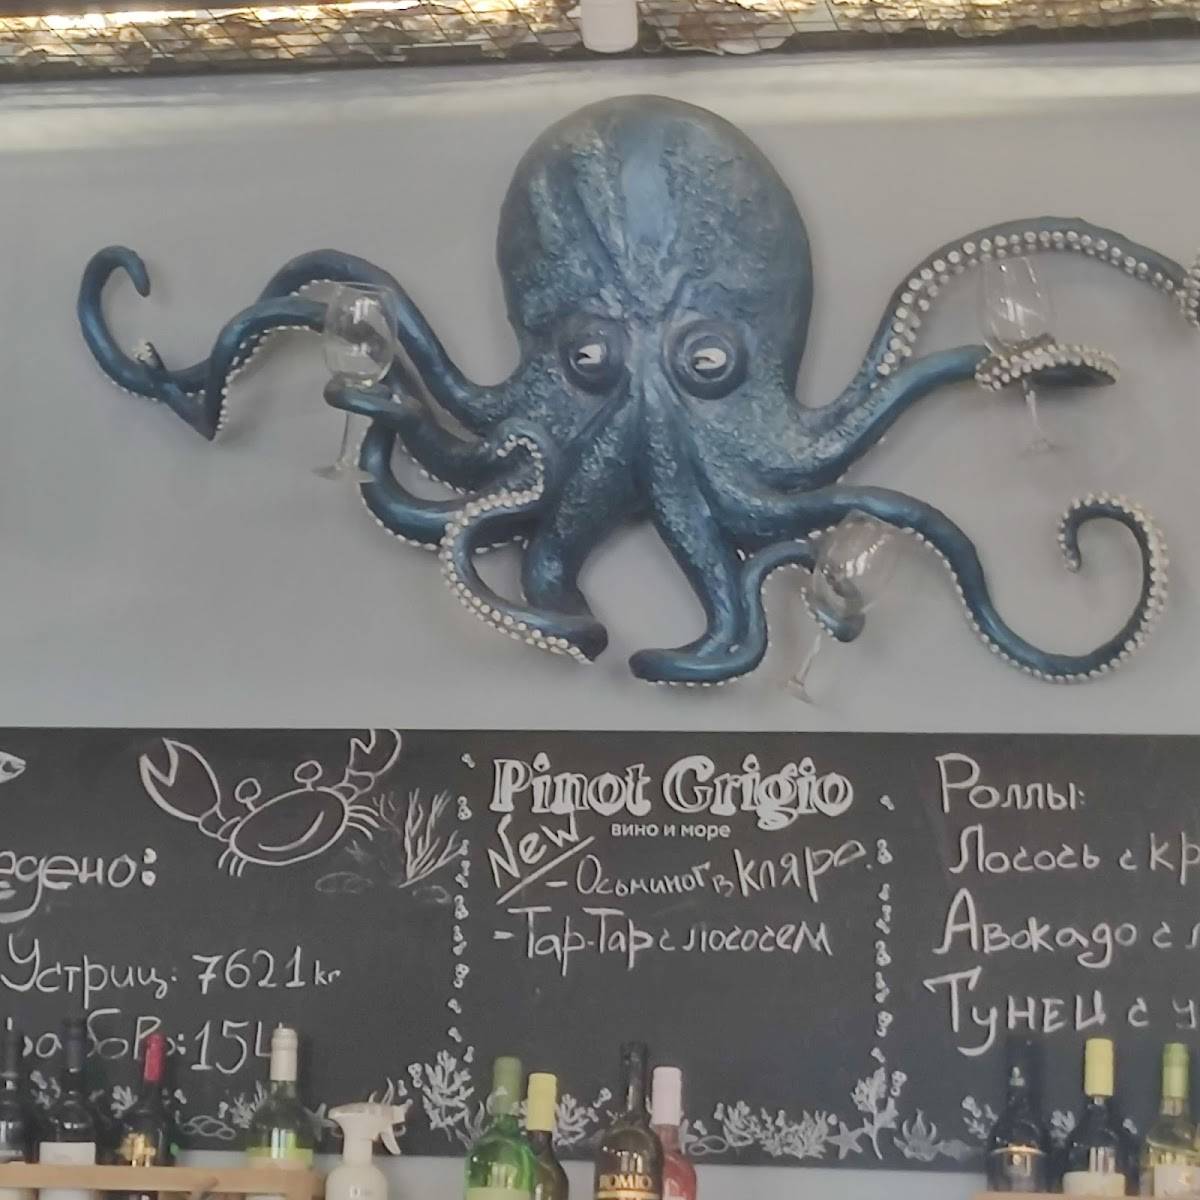 Устриц: 7621 kг
Pinot Grigio
вино и море
New
- Осьминог в кляре
- Тар-Тар с лососем
Роллы:
Лосось с кр
Авокадо с л
Тунец с у
ROMIO